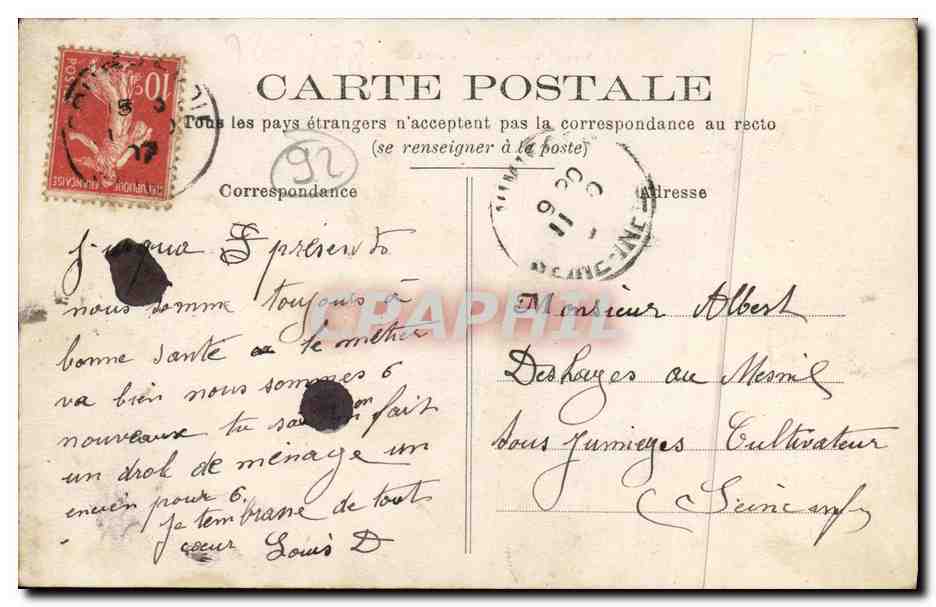 CARTE POSTALE
Tous les pays étrangers n'acceptent pas la correspondance au recto
(se renseigner à la poste)
92
Correspondance
Adresse
10
POSTES
REPUBLIQUE FRANÇAISE
SEINE-INF
présent
nous somme toujours à
bonne sante le métier
va bien nous sommes 6
nouveaux tu on fait
un drole de ménage un
encien pour 6.
Je tembrasse de tout
cœur Louis D
Monsieur Albert
Deshayes au Mesnil
sous Jumieges Cultivateur
(Seine inf
CPAPHIL